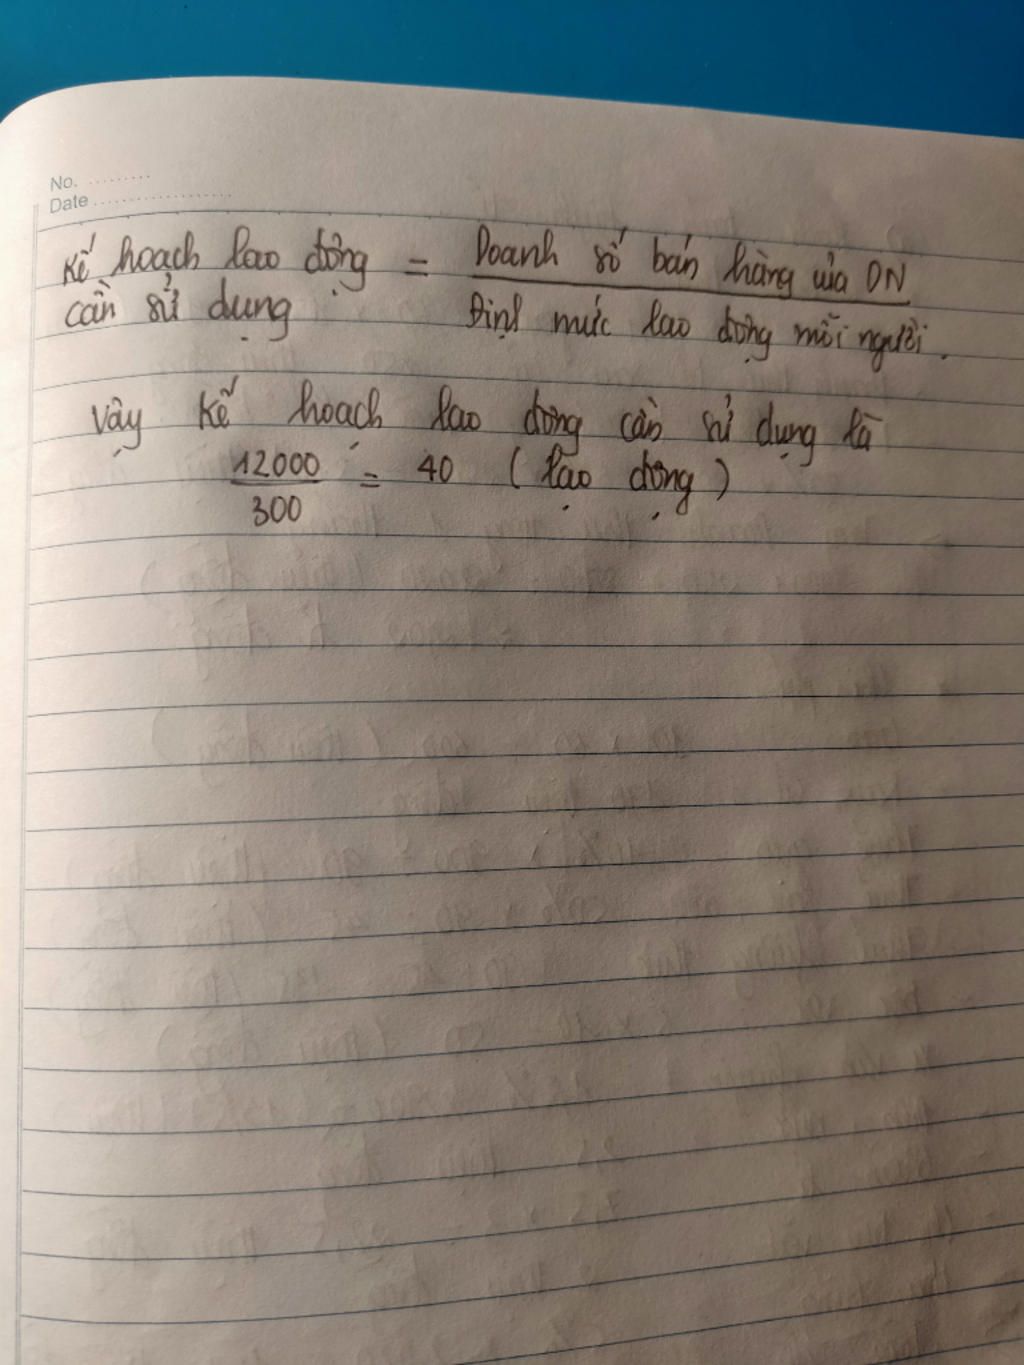 No. .........
Date ....................
Kế hoạch lao động = Doanh số bán hàng của DN
cần sử dụng Định mức lao động mỗi người.
Vậy kế hoạch lao động cần sử dụng là
12000 = 40 (lao động)
300